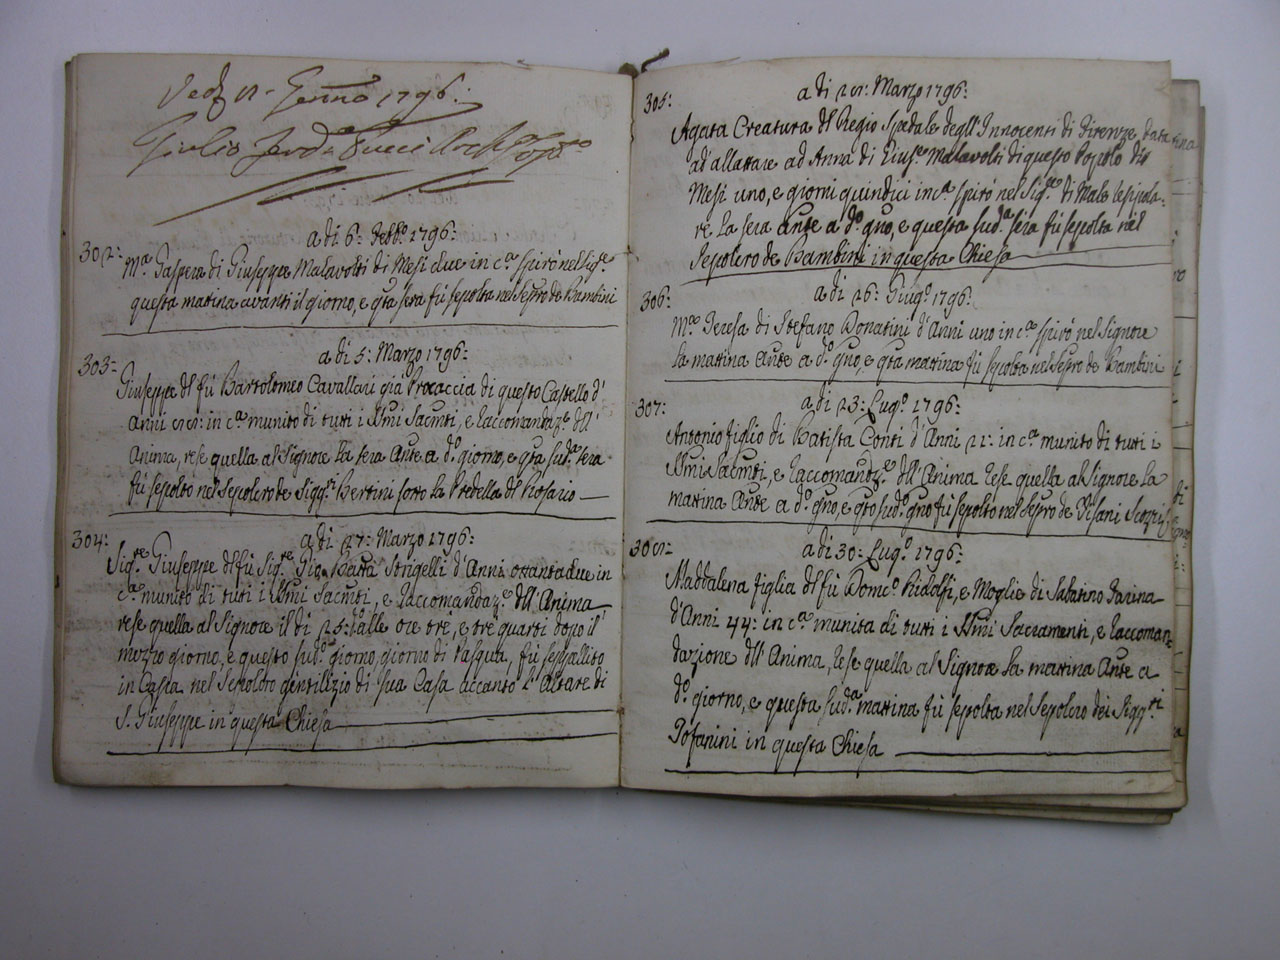 Genno 1796:
302: a di 6: Febb.o 1796:
M.a Gaspera di Giuseppe Malavolti di Mesi due in c.a spirò nel Sig.re
questa mattina avanti il giorno, e q.ta sera fù sepolta nel Sep.ro de Bambini
303: a di 5: Marzo 1796:
Giuseppe del fù Bartolomeo Cavallari già Procaccia di questo Castello d'
Anni in c.a munito di tutti i SSmi Sacm.ti, e Raccomandaz.e dell'
Anima, rese quella al Signore la sera Ante a d.o giorno, e q.ta sud.a sera
fù sepolto nel Sepolcro de Sigg.ri Bertini sotto la Predella del Rosario
304: a di 27: Marzo 1796:
Sig.re Giuseppe del fù Sig.re Gio. Batta Strigelli d'Anni ottantadue in
c.a munito di tutti i SSmi Sacm.ti, e Raccomandaz.e dell'Anima
rese quella al Signore il di 25: d.o alle ore tre, e tre quarti dopo il
mezzo giorno, e questo sud.o giorno, giorno di Pasqua, fù seppellito
in Cassa nel Sepolcro gentilizio di sua Casa accanto l'Altare di
S. Giuseppe in questa Chiesa
305: a di 28: Marzo 1796:
Agata Creatura del Regio Spedale degl'Innocenti di Firenze data
ad allattare ad Anna di Gius.e Malavolti di questo Popolo di
Mesi uno, e giorni quindici in c.a spirò nel Sig.re di Male
la sera ante a d.o gno, e questa sud.a sera fù sepolta nel
Sepolcro de Bambini in questa Chiesa
306: a di 26: Giug.o 1796:
M.a Teresa di Stefano Donatini d'Anni uno in c.a spirò nel Signore
la mattina Ante a d.o gno, e q.ta mattina fù sepolta nel Sep.ro de Bambini
307: a di 23: Lug.o 1796:
Antonio figlio di Batista Conti d'Anni 21: in c.a munito di tutti i
SSmi Sacm.ti, e Raccomandaz.e dell'Anima rese quella al Signore la
mattina Ante a d.o gno, e q.to sud.o gno fù sepolto nel Sep.ro de Pisani
308: a di 30: Lug.o 1796:
Maddalena figlia del fù Domc.o Ridolfi, e Moglie di Sabatino Farina
d'Anni 44: in c.a munita di tutti i SSmi Sacramenti, e Raccoman
dazione dell'Anima, Rese quella al Signore la mattina Ante a
d.o giorno, e questa sud.a mattina fù sepolta nel Sepolcro dei Sigg.ri
Pofanini in questa Chiesa